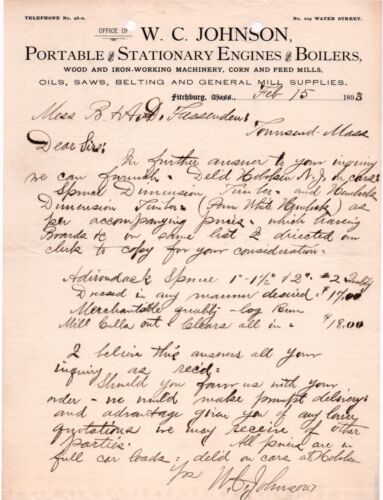 TELEPHONE No. 48-4.
No. 209 WATER STREET.
OFFICE OF
W. C. JOHNSON,
PORTABLE AND STATIONARY ENGINES AND BOILERS,
WOOD AND IRON-WORKING MACHINERY, CORN AND FEED MILLS,
OILS, SAWS, BELTING AND GENERAL MILL SUPPLIES.
Fitchburg, Mass., Feb 15 1893
Mess B. & A.D. Fessenden:
Townsend - Mass
Dear Sirs:
In further answer to your inquiry
we can furnish - Deld Hoboken N.J. on cars:
Spruce Dimension, Timber - and Hemlock
Dimension Timber (Penn White Hemlock) as
per accompanying prices - which having
Boards &c on same list I directed on
clerk to copy for your consideration.
Adirondack Spruce 1" - 1½" & 2" #2 Quality
Dressed in any manner desired $17.00
Merchantable quality - log Run
Mill Culls out - Clears all in = $18.00
I believe this answers all your
inquiry as recd:
Should you favor us with your
order - we would make prompt delivery
and advantage given you of any lower
quotations we may receive of other
parties. All prices are in
full car loads: deld on cars at Hoboken
Yrs
W.C. Johnson